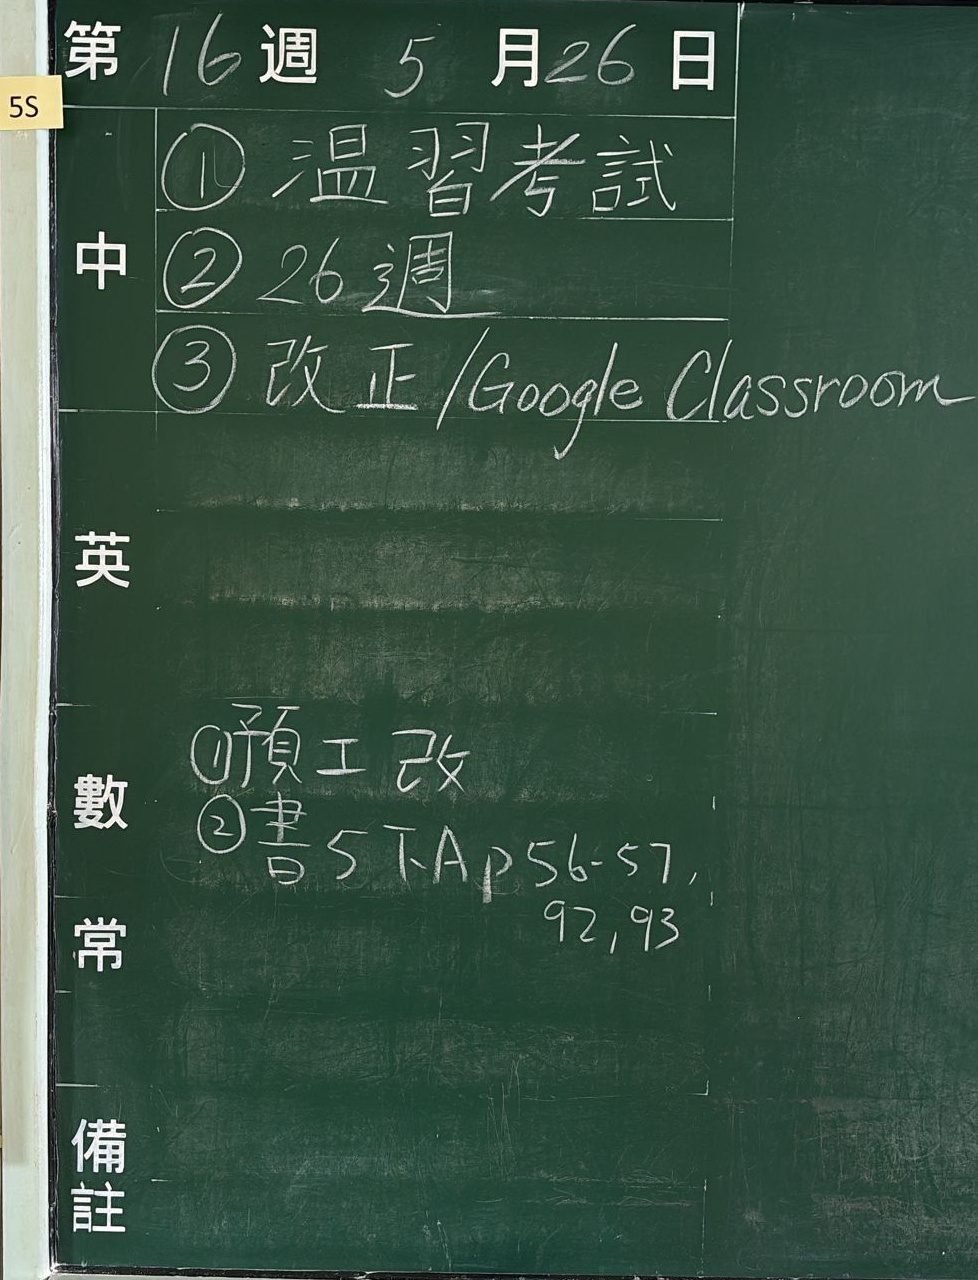 第16週 5月26日
5S
中
① 温習考試
② 26週
③ 改正/Google Classroom
英
數
①預工改
②書5下A p56-57,
92,93
常
備註